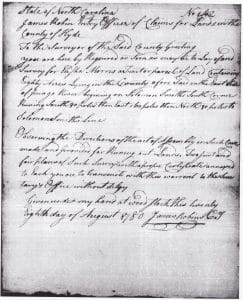 State of North Carolina No
James Entry Officer of Claims for Lands in the
County of Hyde
To the Surveyor of the Said County Greeting
you are hereby Required as Soon as may be to Lay of and
Survey for Morris a tract or parcel of Land Containing
Eighty acres Lying in the County afore Said on the East Side
of River Begining on Solomon Smith Corner
Running South poles then East poles then North poles to
Solomons line
Observing the Directions of the act of Assembly in Such Case
made and provided for Running out Lands. Two Just and
fair plans of Such Survey with a proper Certificate annexed
to Each you are to transmit with this warrant to the Secre
tarys Office without delay
Given under my hand at this twenty
eighth day of August 1780 James